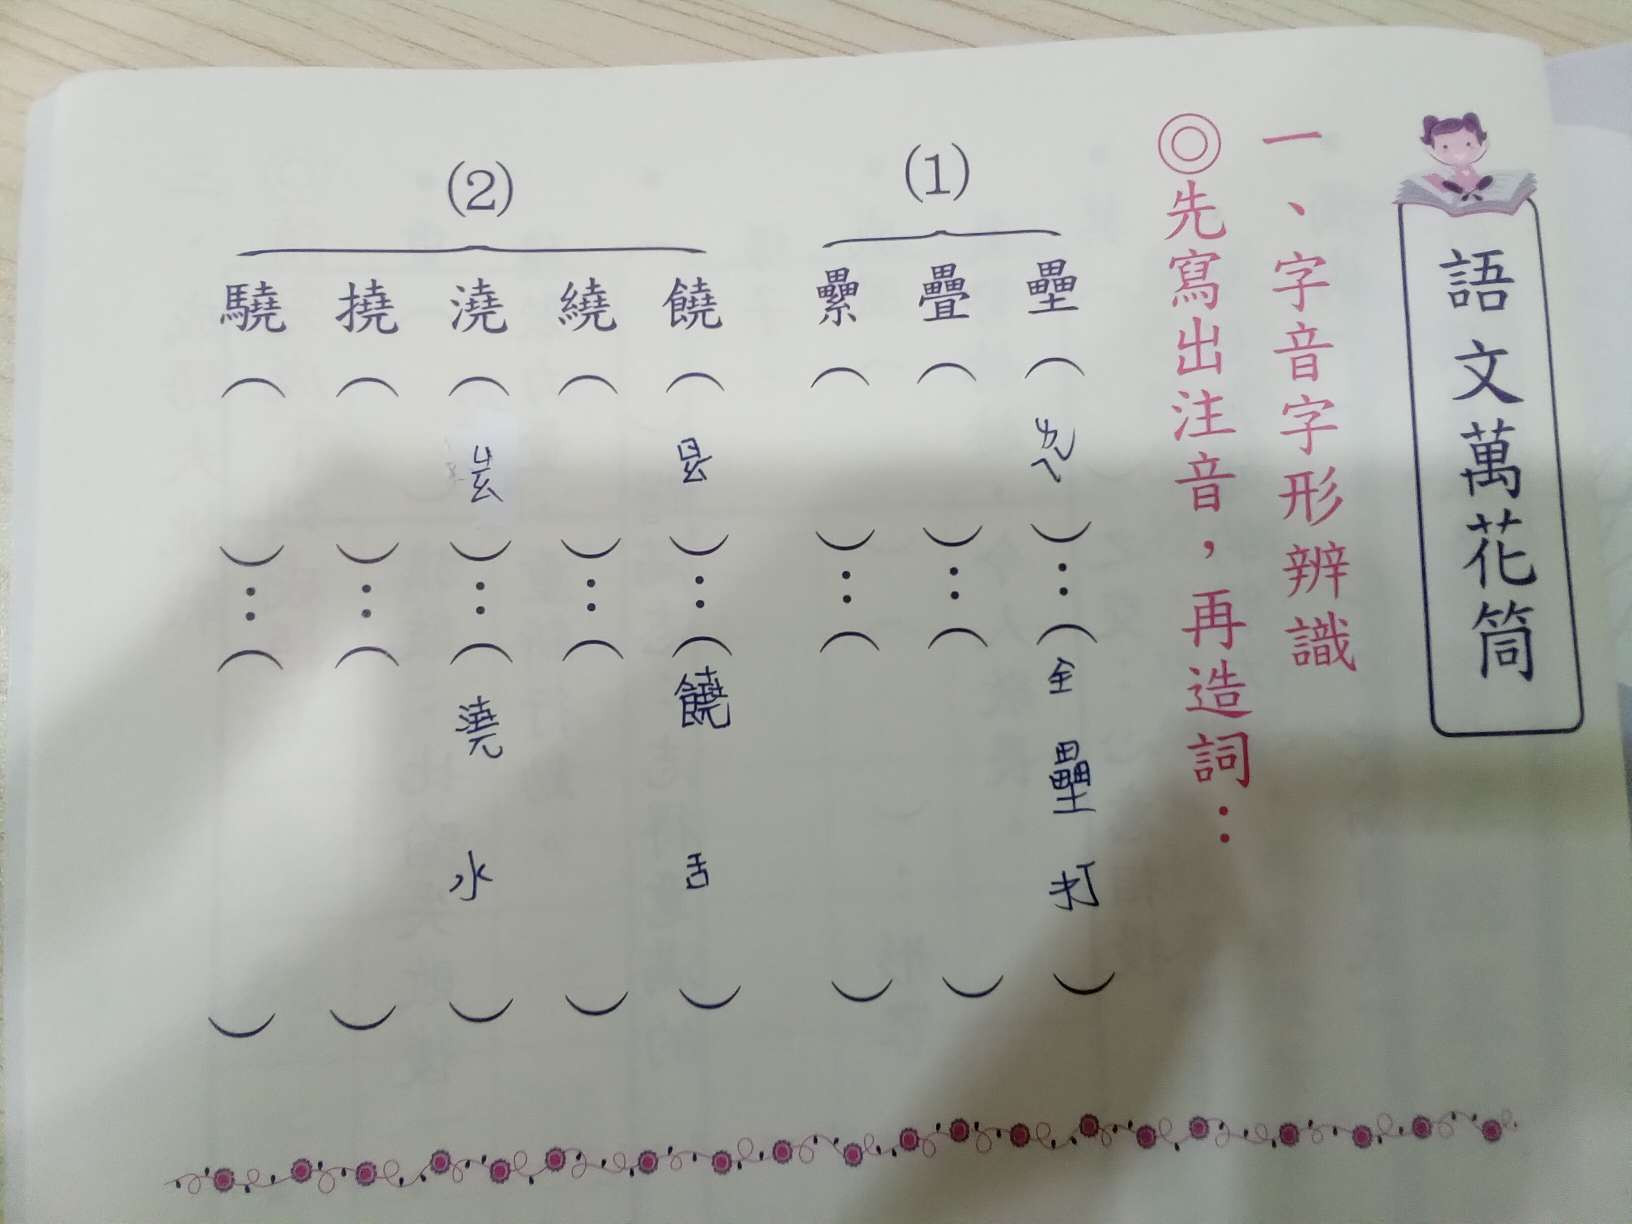 語文萬花筒
一、字音字形辨識
◎先寫出注音，再造詞：
(1)
壘（ㄌㄟˇ）：（全壘打）
疊（）：（）
纍（）：（）
(2)
饒（ㄖㄠˊ）：（饒舌）
繞（）：（）
澆（ㄐㄧㄠ）：（澆水）
撓（）：（）
驍（）：（）